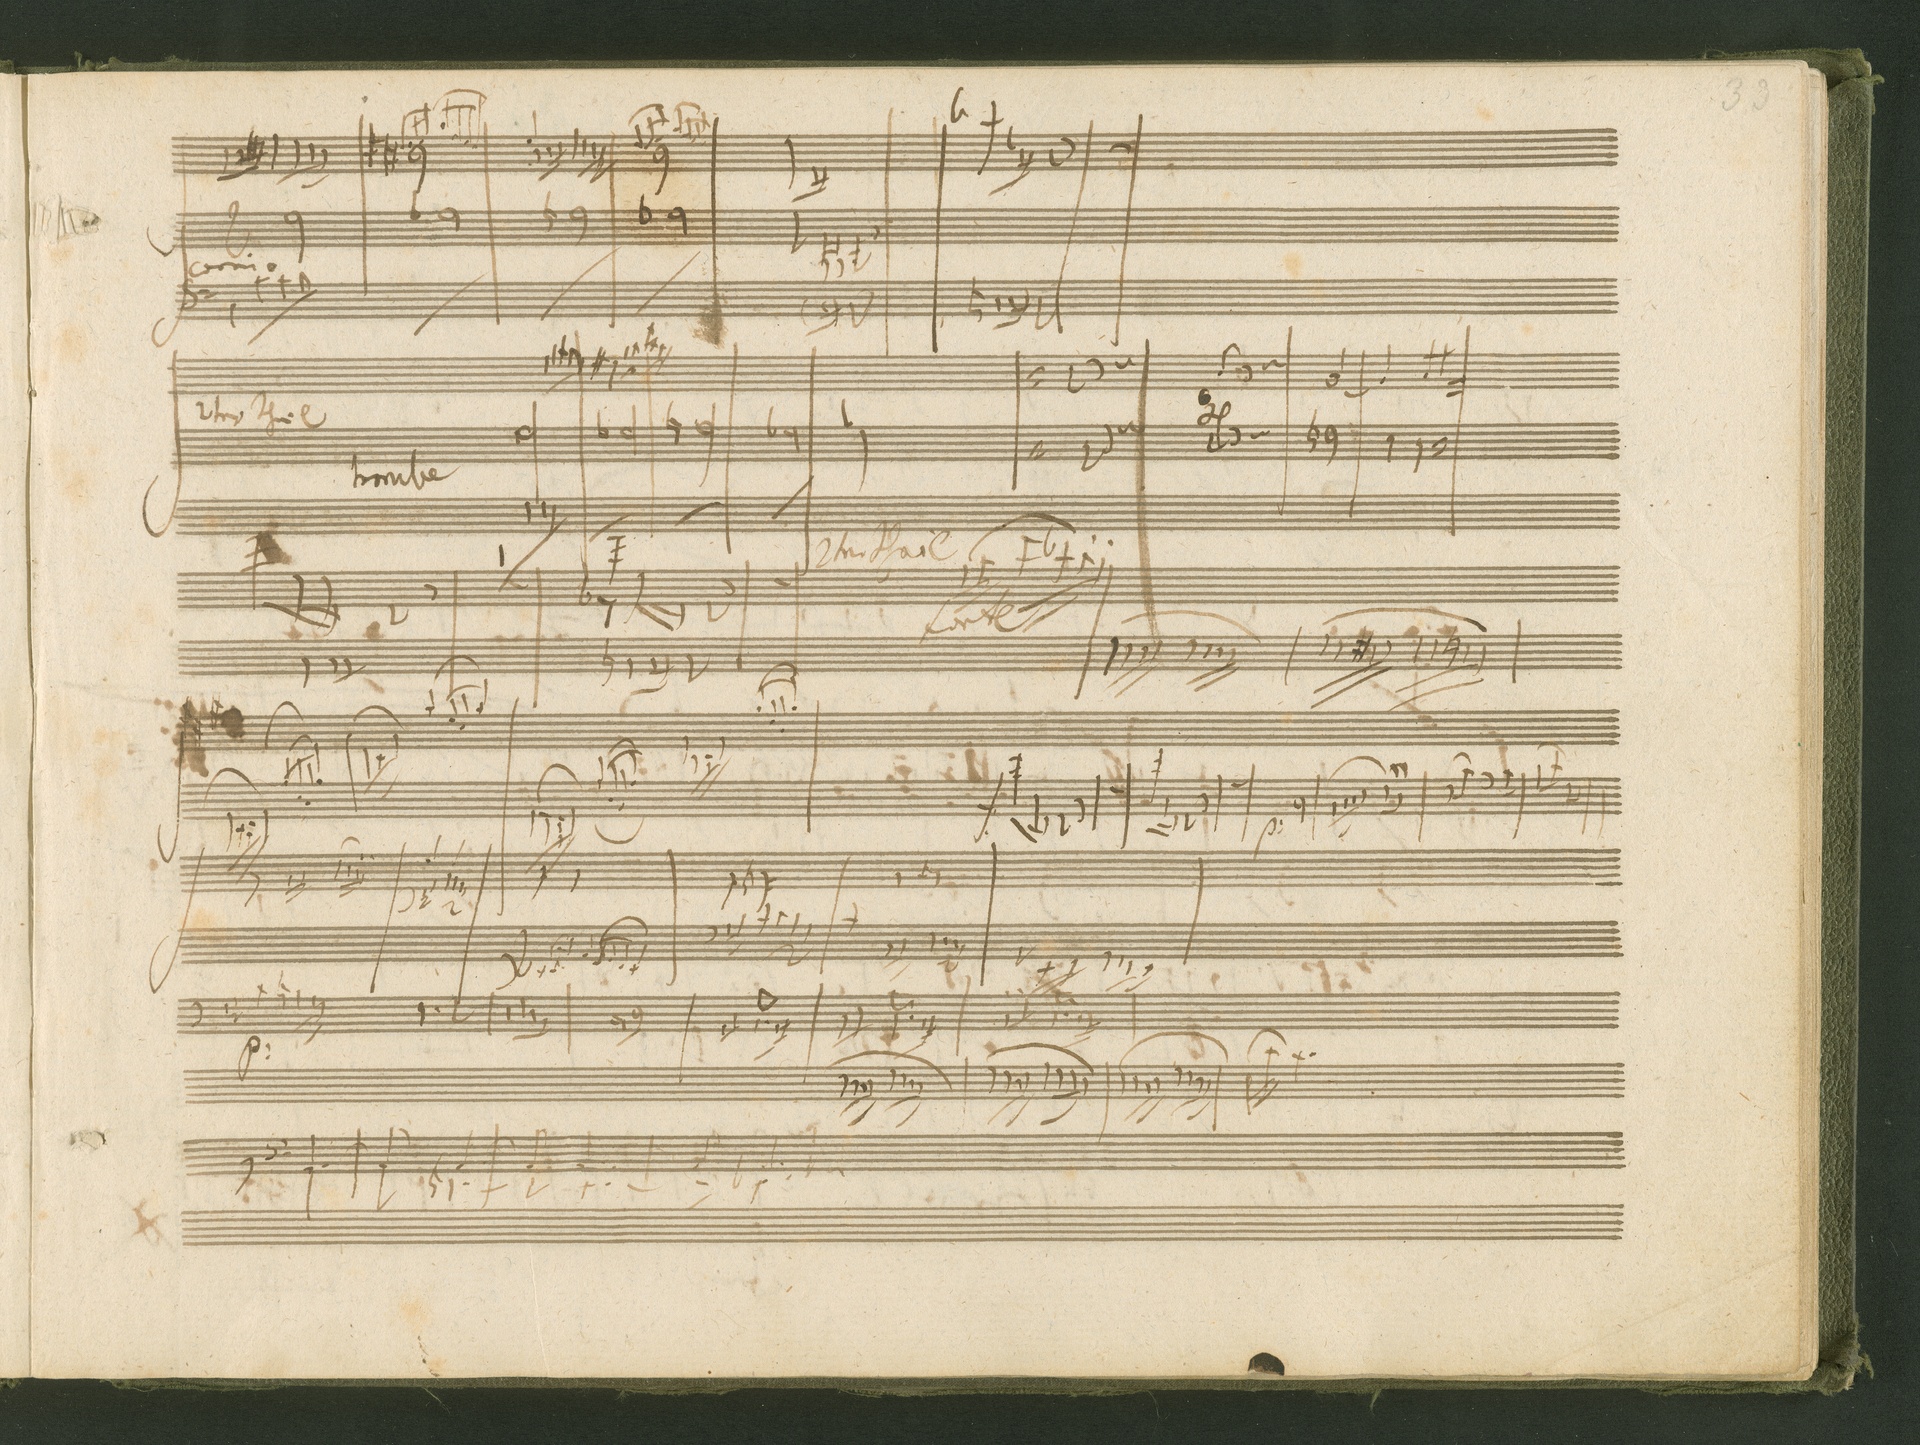 33
corni
2ter Theil
trombe
2ter Theil
forte
p:
p: